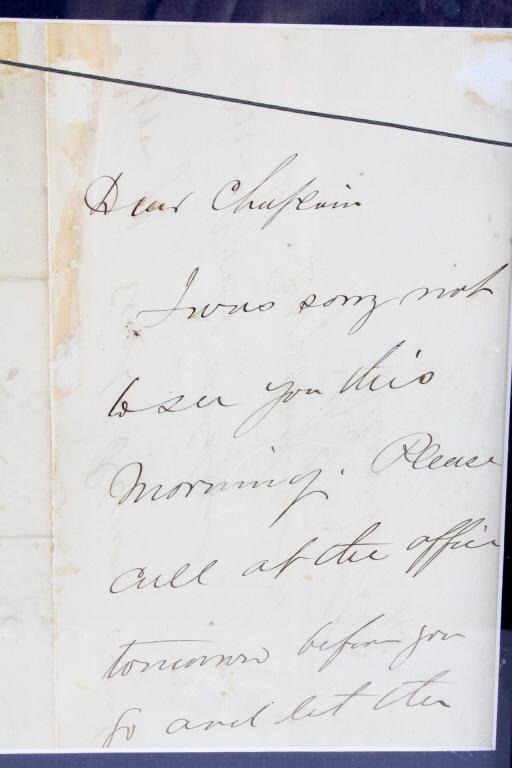 Dear Chaplain
I was sorry not
to see you this
morning. Please
call at the office
tomorrow before you
go and let the